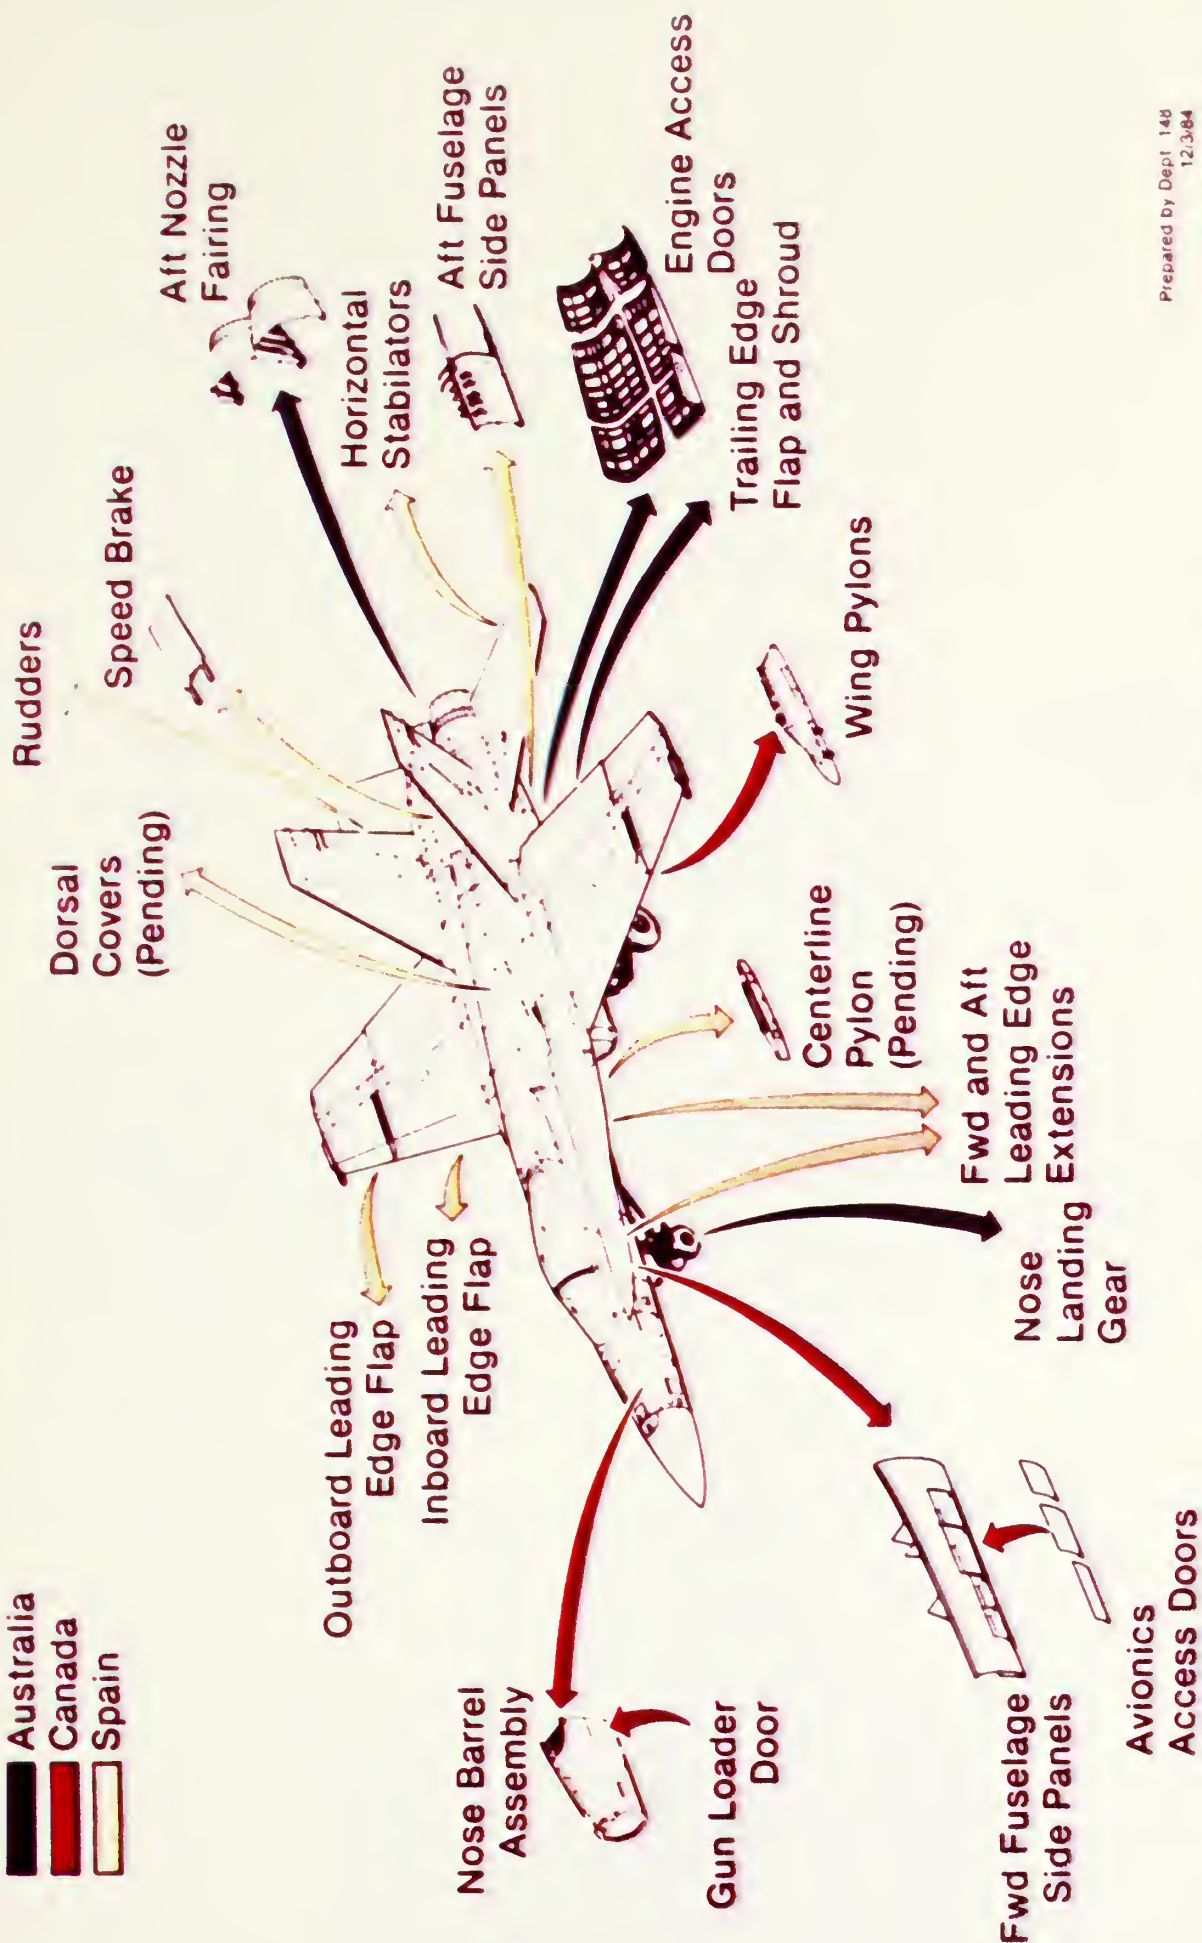 Australia
Canada
Spain
Rudders
Speed Brake
Dorsal
Covers
(Pending)
Aft Nozzle
Fairing
Horizontal
Stabilators
Aft Fuselage
Side Panels
Engine Access
Doors
Trailing Edge
Flap and Shroud
Wing Pylons
Centerline
Pylon
(Pending)
Fwd and Aft
Leading Edge
Extensions
Nose
Landing
Gear
Outboard Leading
Edge Flap
Inboard Leading
Edge Flap
Nose Barrel
Assembly
Gun Loader
Door
Fwd Fuselage
Side Panels
Avionics
Access Doors
Prepared by Dept 148
12/3/84